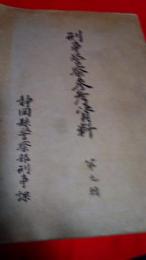 刑事警察参考資料
第九輯
静岡県警察部刑事課